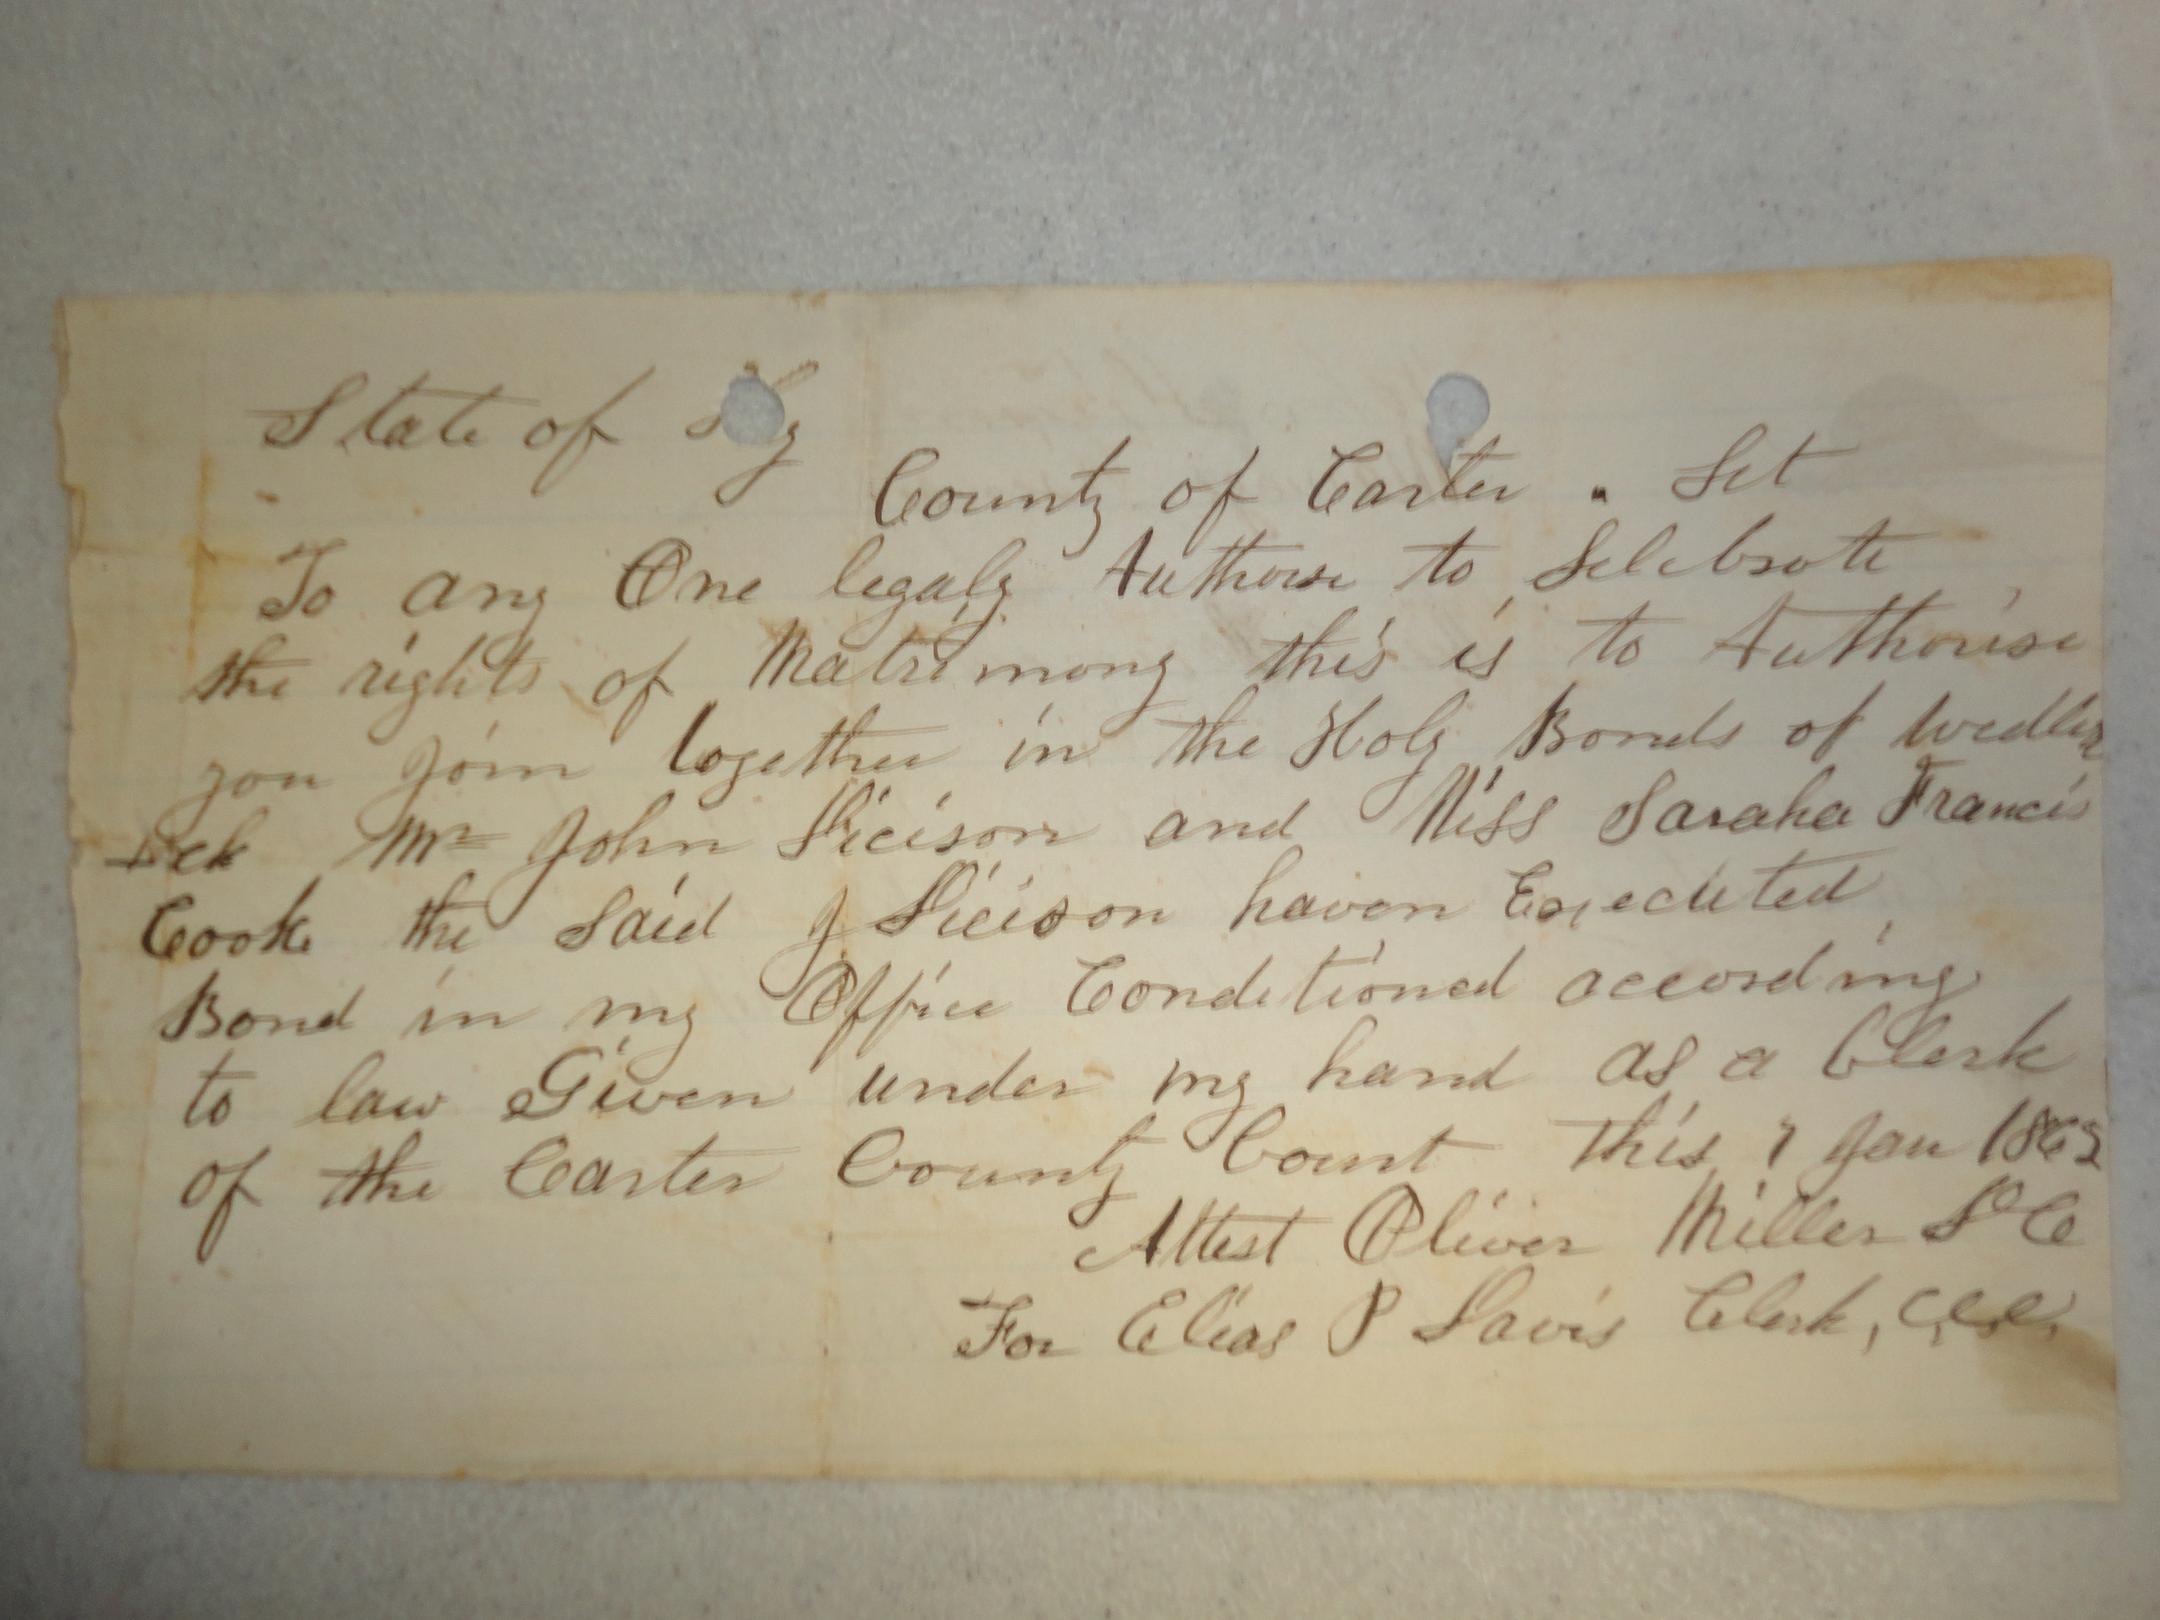 State of Ky
County of Carter . Sct
To any One legaly Authorise to Selebrate
the rights of Matrimony this is to Authorise
you join together in the Holy Bonds of
Mr John and Miss Saraha Francis
Cook the Said J haven Executed
Bond in my Office Conditioned according
to law Given under my hand as a Clerk
of the Carter County Court this Jan
Attest Oliver Miller D C
For Elias P Davis Clerk, C.C.C.